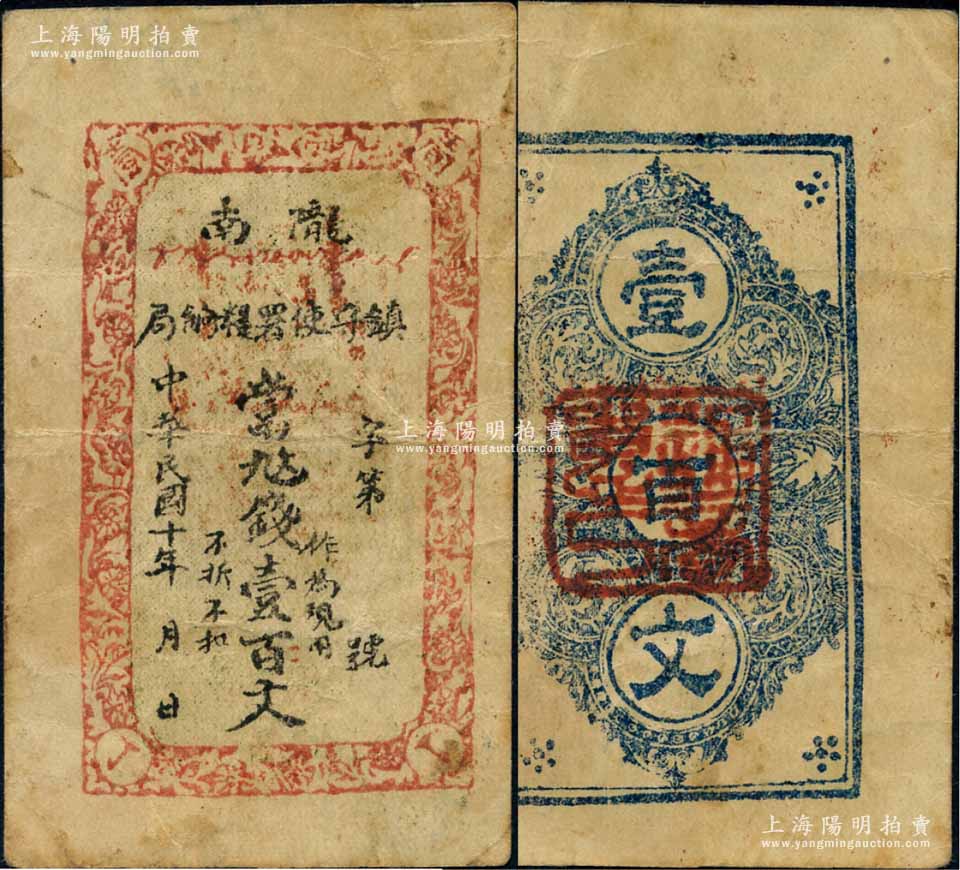 上海陽明拍賣
www.yangmingauction.com
隴南
鎮守使署糧餉局
字第 號
作為現用
當九錢壹百文
不折不扣
中華民國十年 月 日
上海陽明拍賣
www.yangmingauction.com
壹
百
文
上海陽明拍賣
www.yangmingauction.com